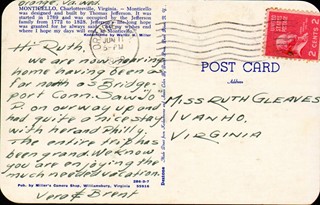 Orange, Va.
MONTICELLO, Charlottesville, Virginia. — Monticello
was designed and built by Thomas Jefferson. It was
started in 1769 and was occupied by the Jefferson
family from 1772 to 1828. Jefferson's undying hope
was granted for he always said
where I hope my days will end
JUN 11
5-PM
2 CENTS 2
Hi Ruth,
we are now nearing
home having been as
far north as Bridge-
port Conn. Saw Jo
D. on our way up and
had quite a nice stay
with her and Philly.
The entire trip has
been grand. We know
you are enjoying the
much needed vacation.
Vera & Brent
POST CARD
Address
MISS RUTH GLEAVES
IVANHO,
VIRGINIA
Pub. by Miller's Camera Shop, Williamsburg, Virginia